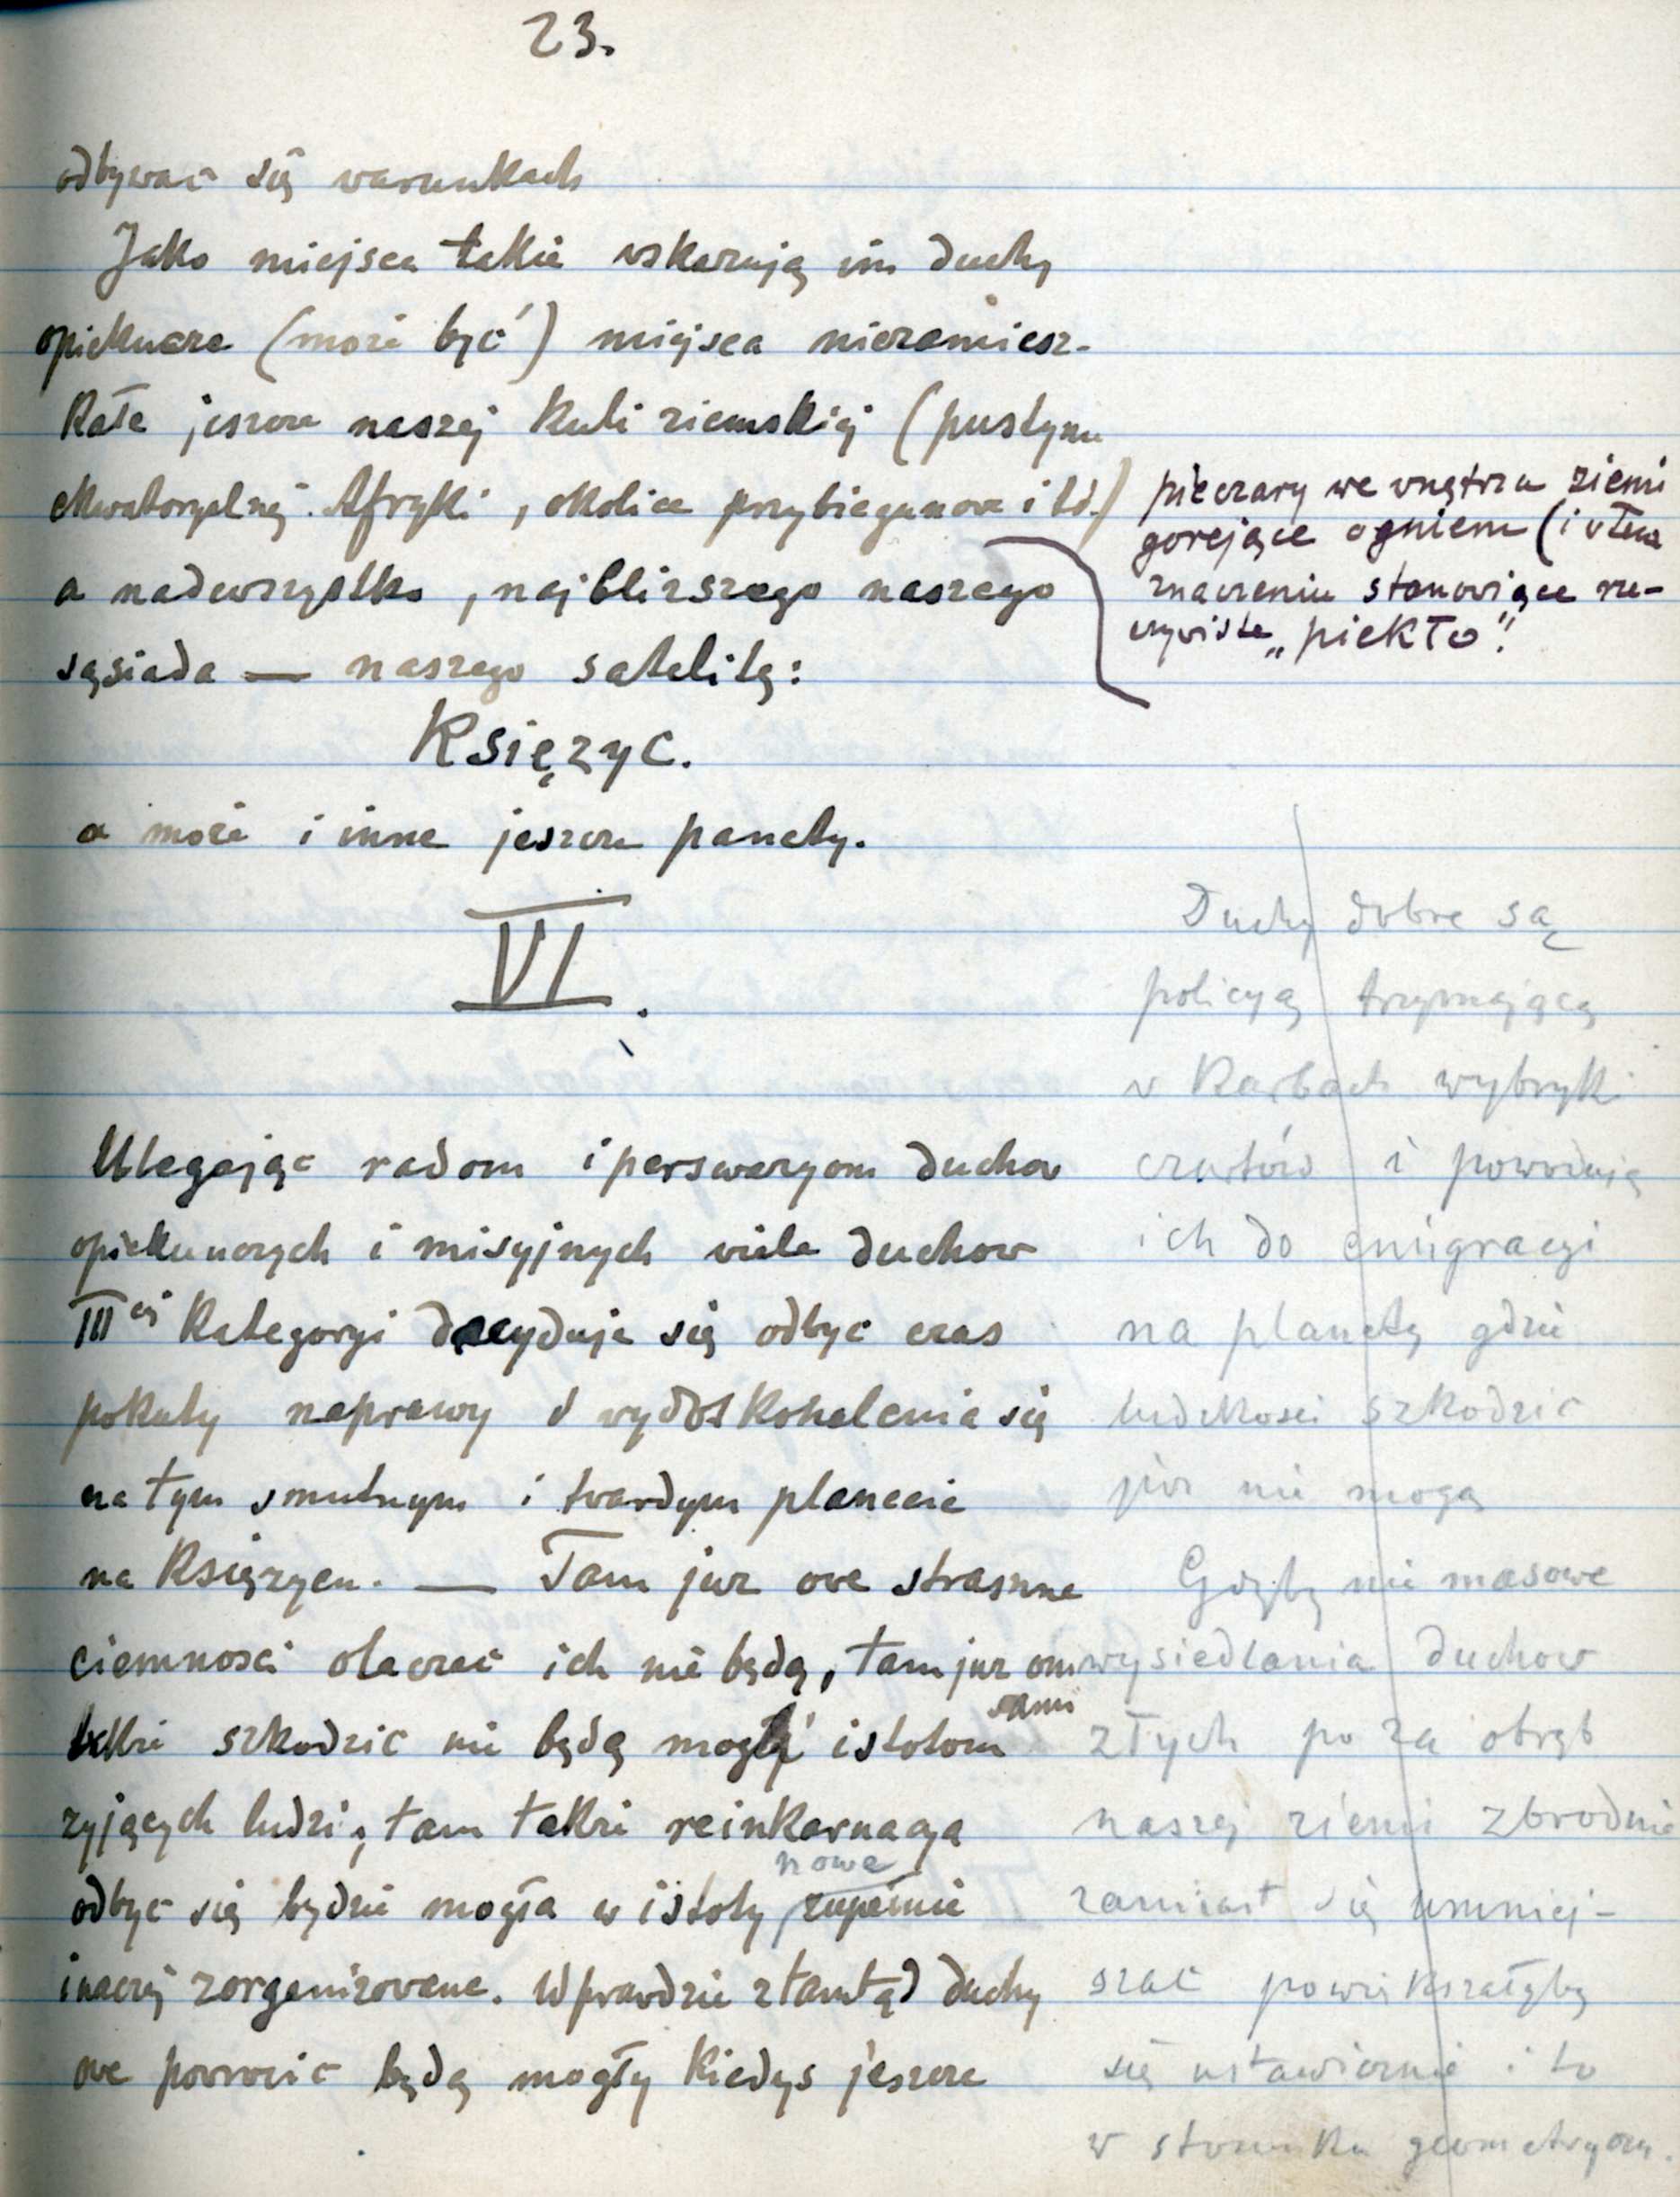 23.
odbywać się warunkach
Jako miejsca takie wskazują im duchy
opiekuncze (może być) miejsca niezamiesz-
kałe jeszcze naszej kuli ziemskiej (pustynie
ekwatoryalnej Afryki, okolice przybiegunowe i td.)
a nadewszystko, najbliższego naszego
sąsiada — naszego satelitę:
Księżyc.
a może i inne jeszcze panety.
pieczary we wnętrzu ziemi
gorejące ogniem (i w tem
znaczeniu stanowiące rze-
czywiste „piekło"!
VI.
Ulegając radom i perswazyom duchow
opiekunczych i misyjnych wiele duchow
III ej Kategoryi decyduje się odbyc czas
pokuty naprawy i wydoskonalenia się
na tym smutnym i twardym planecie
na Księżycu. — Tam juz owe straszne
ciemnosci otaczać ich nie będą, tam juz oni
także szkodzic nie będą mogły istotom
sami
zyjących ludzi, tam także reinkarnacya
nowe
odbyc się będzie mogła w istoty zupełnie
inaczej zorganizowane. Wprawdzie ztamtąd duchy
owe powrocic będą mogły kiedys jeszcze
Duchy dobre są
policyą trzymającą
w Karbach wybryki
czartów i powodują
ich do emigracyi
na planety gdzie
ludzkosci szkodzic
juz nie mogą
Gdyby nie masowe
wysiedlania duchow
złych po za obręb
naszej ziemi zbrodnie
zamiast się umniej-
szac powiększałyby
się ustawicznie i to
w stosunku geometrycz.